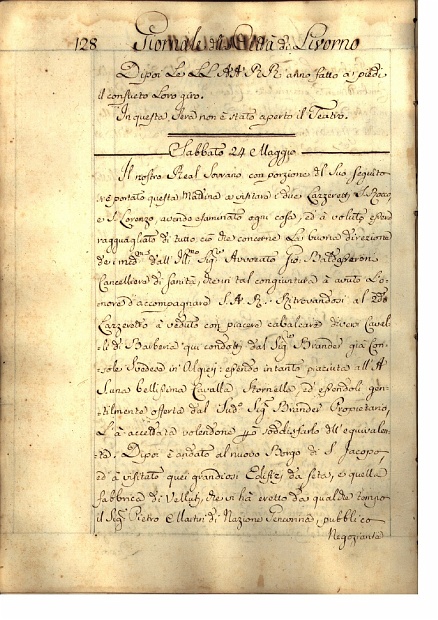 128 Giornale della Città di Livorno
Dipoi Le LL. AA. RR. anno fatto a' piedi
il consueto Loro giro.
In questa Sera non è stato aperto il Teatro.
Sabbato 24 Maggio
Il nostro Real Sovrano con porzione del Suo seguito
si è portato questa Mattina a visitare i due Lazzeretti S. Rocco
e S. Lorenzo, avendo esaminato ogni cosa, ed à voluto essere
ragguagliato di tutto ciò che concerne La buona direzione
de i med.mi dall' Ill.mo Sig.re Avvocato Gio. Baldasseroni
Cancelliere di Sanità, che in tal congiuntura à avuto L'o-
nore d'accompagnare S. A. R. Ritrovandosi al 2do
Lazzeretto à veduto con piacere cavalcare diversi Caval-
li di Barberia qui condotti dal Sig.re Brander già Con-
sole Svedese in Algieri: essendo intanto piaciuta all' A.
S. una bellissima Cavalla Stornella, ed essendoli gen-
tilmente offerta dal Sud.o Sig.re Brander Proprietario,
L'à accettata volendone però soddisfarlo dell' equivalen-
te. Dipoi è andato al nuovo Borgo di S. Jacopo
ed à visitato quei grandiosi Edifizi da seta, e quella
fabbrica di Velluti, che vi hà eretto da qualche tempo
il Sig.re Pietro Martini di Nazione Genovina, pubblico
Negoziante